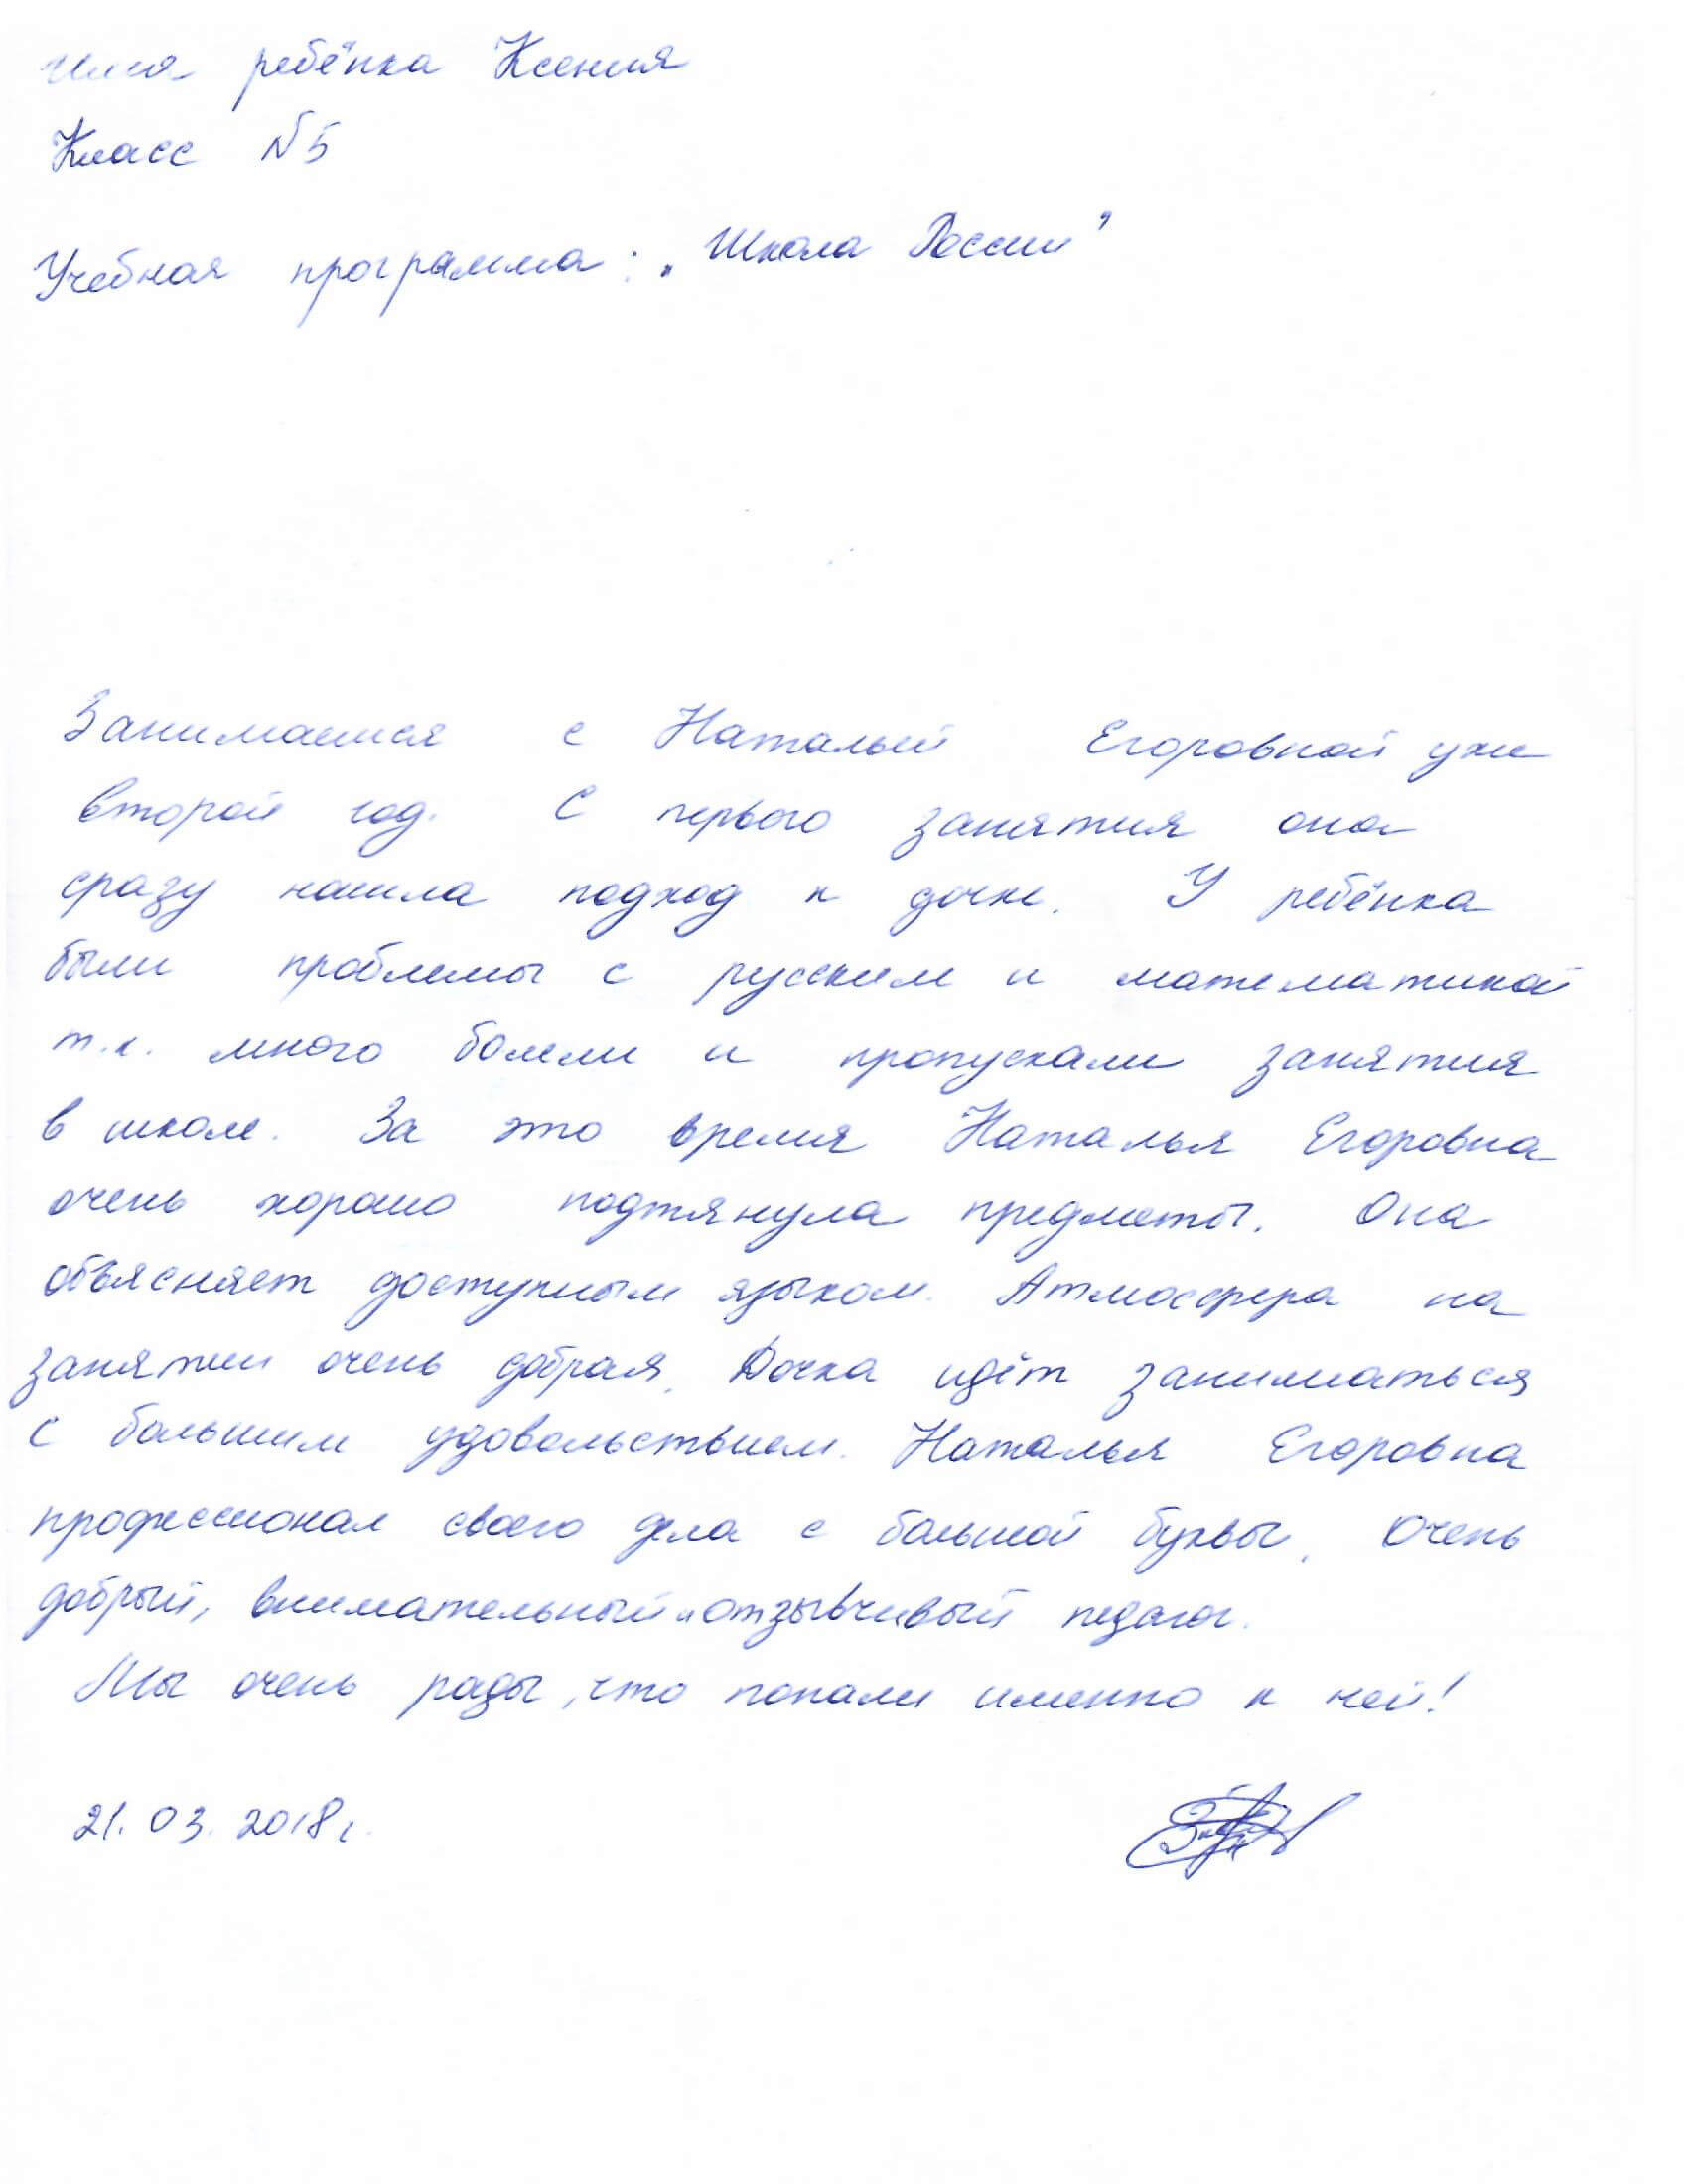 Имя ребёнка Ксения
Класс №5
Учебная программа: „Школа России"
Занимаемся с Натальей Егоровной уже
второй год. С первого занятия она
сразу нашла подход к дочке. У ребёнка
были проблемы с русским и математикой
т.к. много болели и пропускали занятия
в школе. За это время Наталья Егоровна
очень хорошо подтянула предметы. Она
объясняет доступным языком. Атмосфера на
занятии очень добрая. Дочка идёт заниматься
с большим удовольствием. Наталья Егоровна
профессионал своего дела с большой буквы. Очень
добрый, внимательный и отзывчивый педагог.
Мы очень рады, что попали именно к ней!
21.03.2018г.